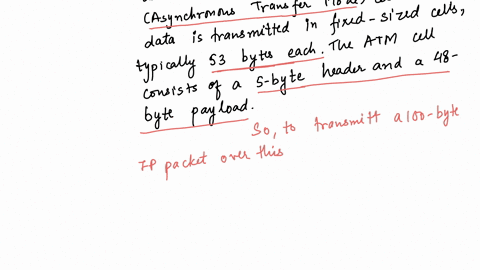 (Asynchronous Transfer Mode)
data is transmitted in fixed-sized cells,
typically 53 bytes each. The ATM cell
consists of a 5-byte header and a 48-
byte payload.
So, to transmitt a 100-byte
IP packet over this